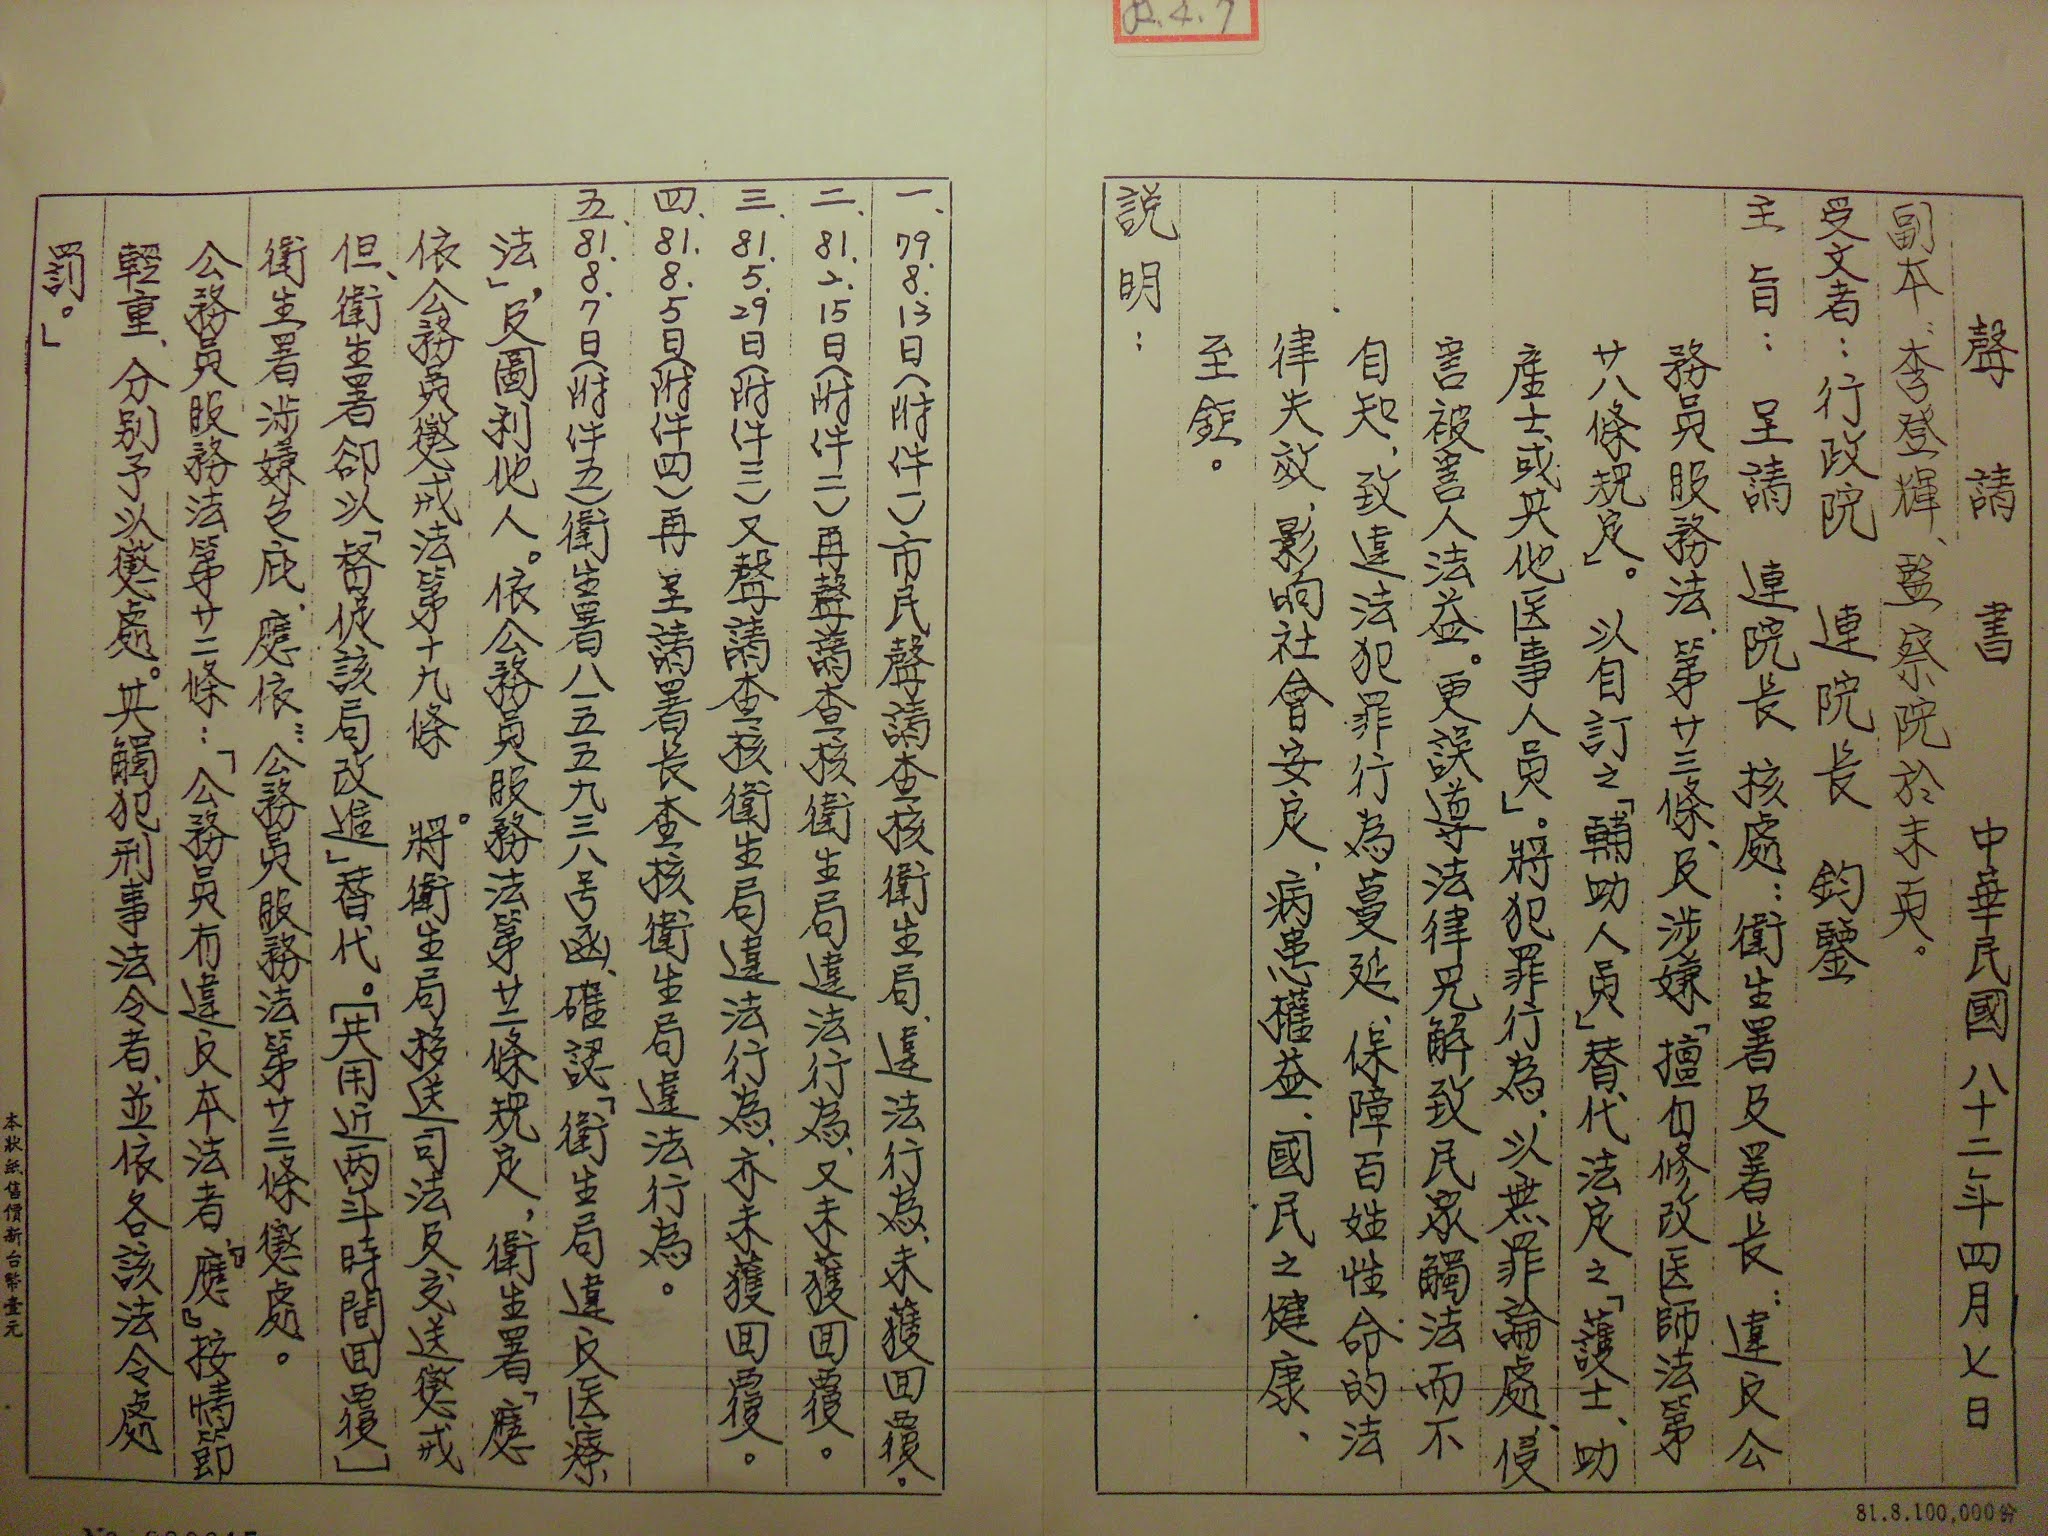 82.4.7
聲請書 中華民國八十二年四月七日
副本:李登輝、監察院於末頁。
受文者:行政院 連院長 鈞鑒
主旨:呈請 連院長 核處:衛生署及署長:違反公
務員服務法、第廿三條、及涉嫌「擅自修改医師法第
廿八條規定」。以自訂之「輔助人員」替代法定之「護士、助
產士或其他医事人員」。將犯罪行為、以無罪論處、侵
害被害人法益。更誤導法律見解致民眾觸法而不
自知、致違法犯罪行為蔓延、保障百姓性命的法
律失效、影响社會安定、病患權益、國民之健康、
至鉅。
説明:
一、79.8.13日(附件一)市民聲請查核衛生局、違法行為、未獲回覆。
二、81.2.15日(附件二)再聲請查核衛生局違法行為、又未獲回覆。
三、81.5.29日(附件三)又聲請查核衛生局違法行為、亦未獲回覆。
四、81.8.5日(附件四)再呈請署長查核衛生局違法行為。
五、81.8.7日(附件五)衛生署八一五五九三八号函、確認「衛生局違反医療
法」,反圖利他人。依公務員服務法第廿二條規定,衛生署「應
依公務員懲戒法第十九條 。將衛生局移送司法及交送懲戒
但、衛生署卻以「督促該局改進」替代。[共用近両年時間回覆]
衛生署涉嫌包庇、應依:公務員服務法第廿三條懲處。
公務員服務法第廿二條:「公務員有違反本法者『應』按情節
輕重、分別予以懲處。其觸犯刑事法令者、並依各該法令處
罰。」
本狀紙售價新台幣壹元
81.8.100,000份